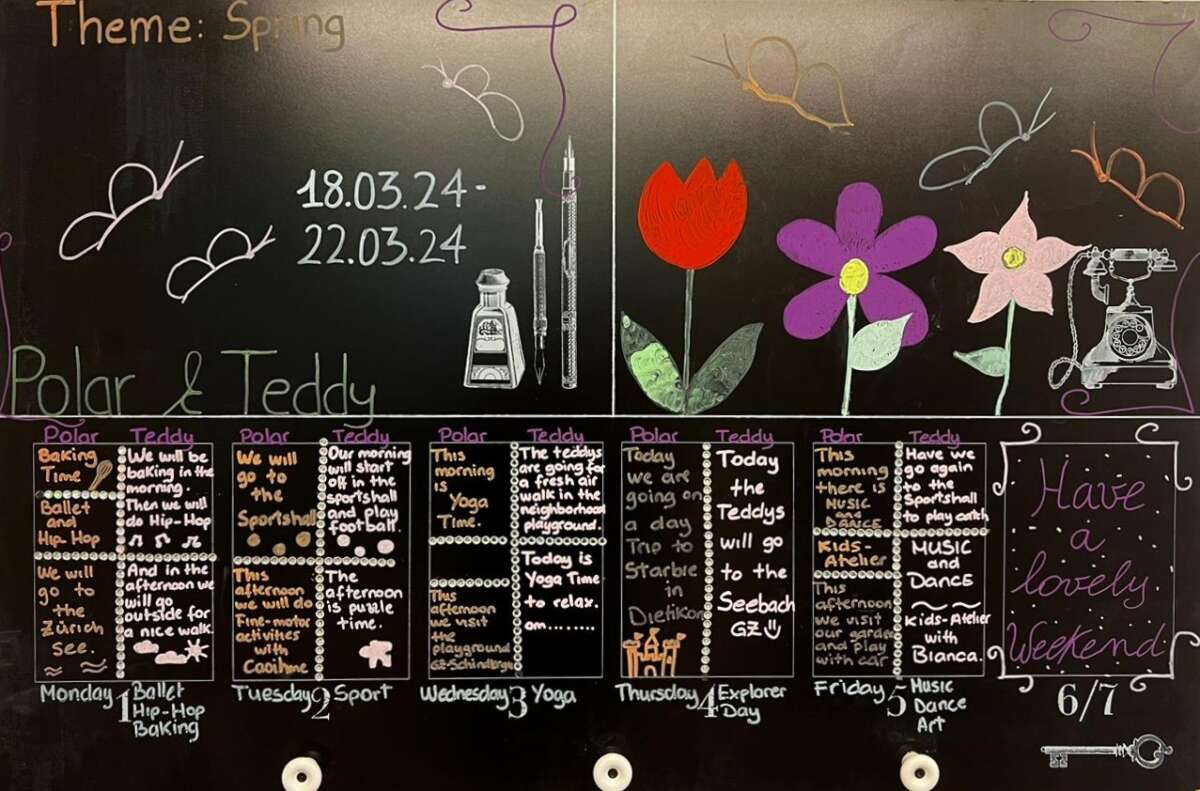 Theme: Spring
18.03.24-
22.03.24
Polar & Teddy
Polar
Baking
Time
Ballet
and
Hip-Hop
We will
go to
the
Zürich
See.
Teddy
We will be
baking in the
morning.
Then we will
do Hip-Hop
And in the
afternoon we
will go
outside for
a nice walk.
Monday
1
Ballet
Hip-Hop
Baking
Polar
We will
go to
the
Sportshall
This
afternoon
we will do
Fine-motor
activities
with
Caoihme
Teddy
Our morning
will start
off in the
sportshall
and play
football.
The
afternoon
is puzzle
time.
Tuesday
2
Sport
Polar
This
morning
is
Yoga
Time.
This
afternoon
we visit
the
playground
GZ-Schindlergut
Teddy
The teddys
are going for
a fresh air
walk in the
neighborhood
playground.
Today is
Yoga Time
to relax.
om........
Wednesday
3
Yoga
Polar
Today
we are
going on
a day
Trip to
Starbie
in
Dietikon
Teddy
Today
the
Teddys
will go
to the
Seebach
GZ
Thursday
4
Explorer
Day
Polar
This
morning
there is
MUSIC
and
DANCE
Kids-
Atelier
This
afternoon
we visit
our garden
and play
with car
Teddy
Have we
go again
to the
Sportshall
to play catch
MUSIC
and
DANCE
Kids-Atelier
with
Bianca.
Friday
5
Music
Dance
Art
Have
a
lovely
Weekend
6/7